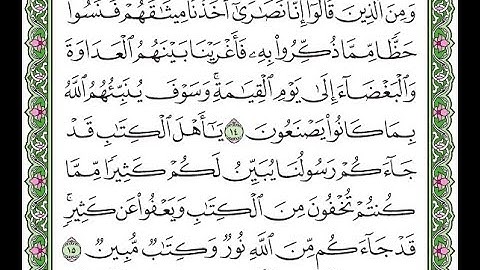 وَمِنَ ٱلَّذِينَ قَالُوٓا۟ إِنَّا نَصَٰرَىٰٓ أَخَذْنَا مِيثَٰقَهُمْ فَنَسُوا۟
حَظًّا مِّمَّا ذُكِّرُوا۟ بِهِۦ فَأَغْرَيْنَا بَيْنَهُمُ ٱلْعَدَاوَةَ
وَٱلْبَغْضَآءَ إِلَىٰ يَوْمِ ٱلْقِيَٰمَةِ ۚ وَسَوْفَ يُنَبِّئُهُمُ ٱللَّهُ
بِمَا كَانُوا۟ يَصْنَعُونَ ١٤ يَٰٓأَهْلَ ٱلْكِتَٰبِ قَدْ
جَآءَكُمْ رَسُولُنَا يُبَيِّنُ لَكُمْ كَثِيرًا مِّمَّا
كُنتُمْ تُخْفُونَ مِنَ ٱلْكِتَٰبِ وَيَعْفُوا۟ عَن كَثِيرٍ ۚ
قَدْ جَآءَكُم مِّنَ ٱللَّهِ نُورٌ وَكِتَٰبٌ مُّبِينٌ ١٥